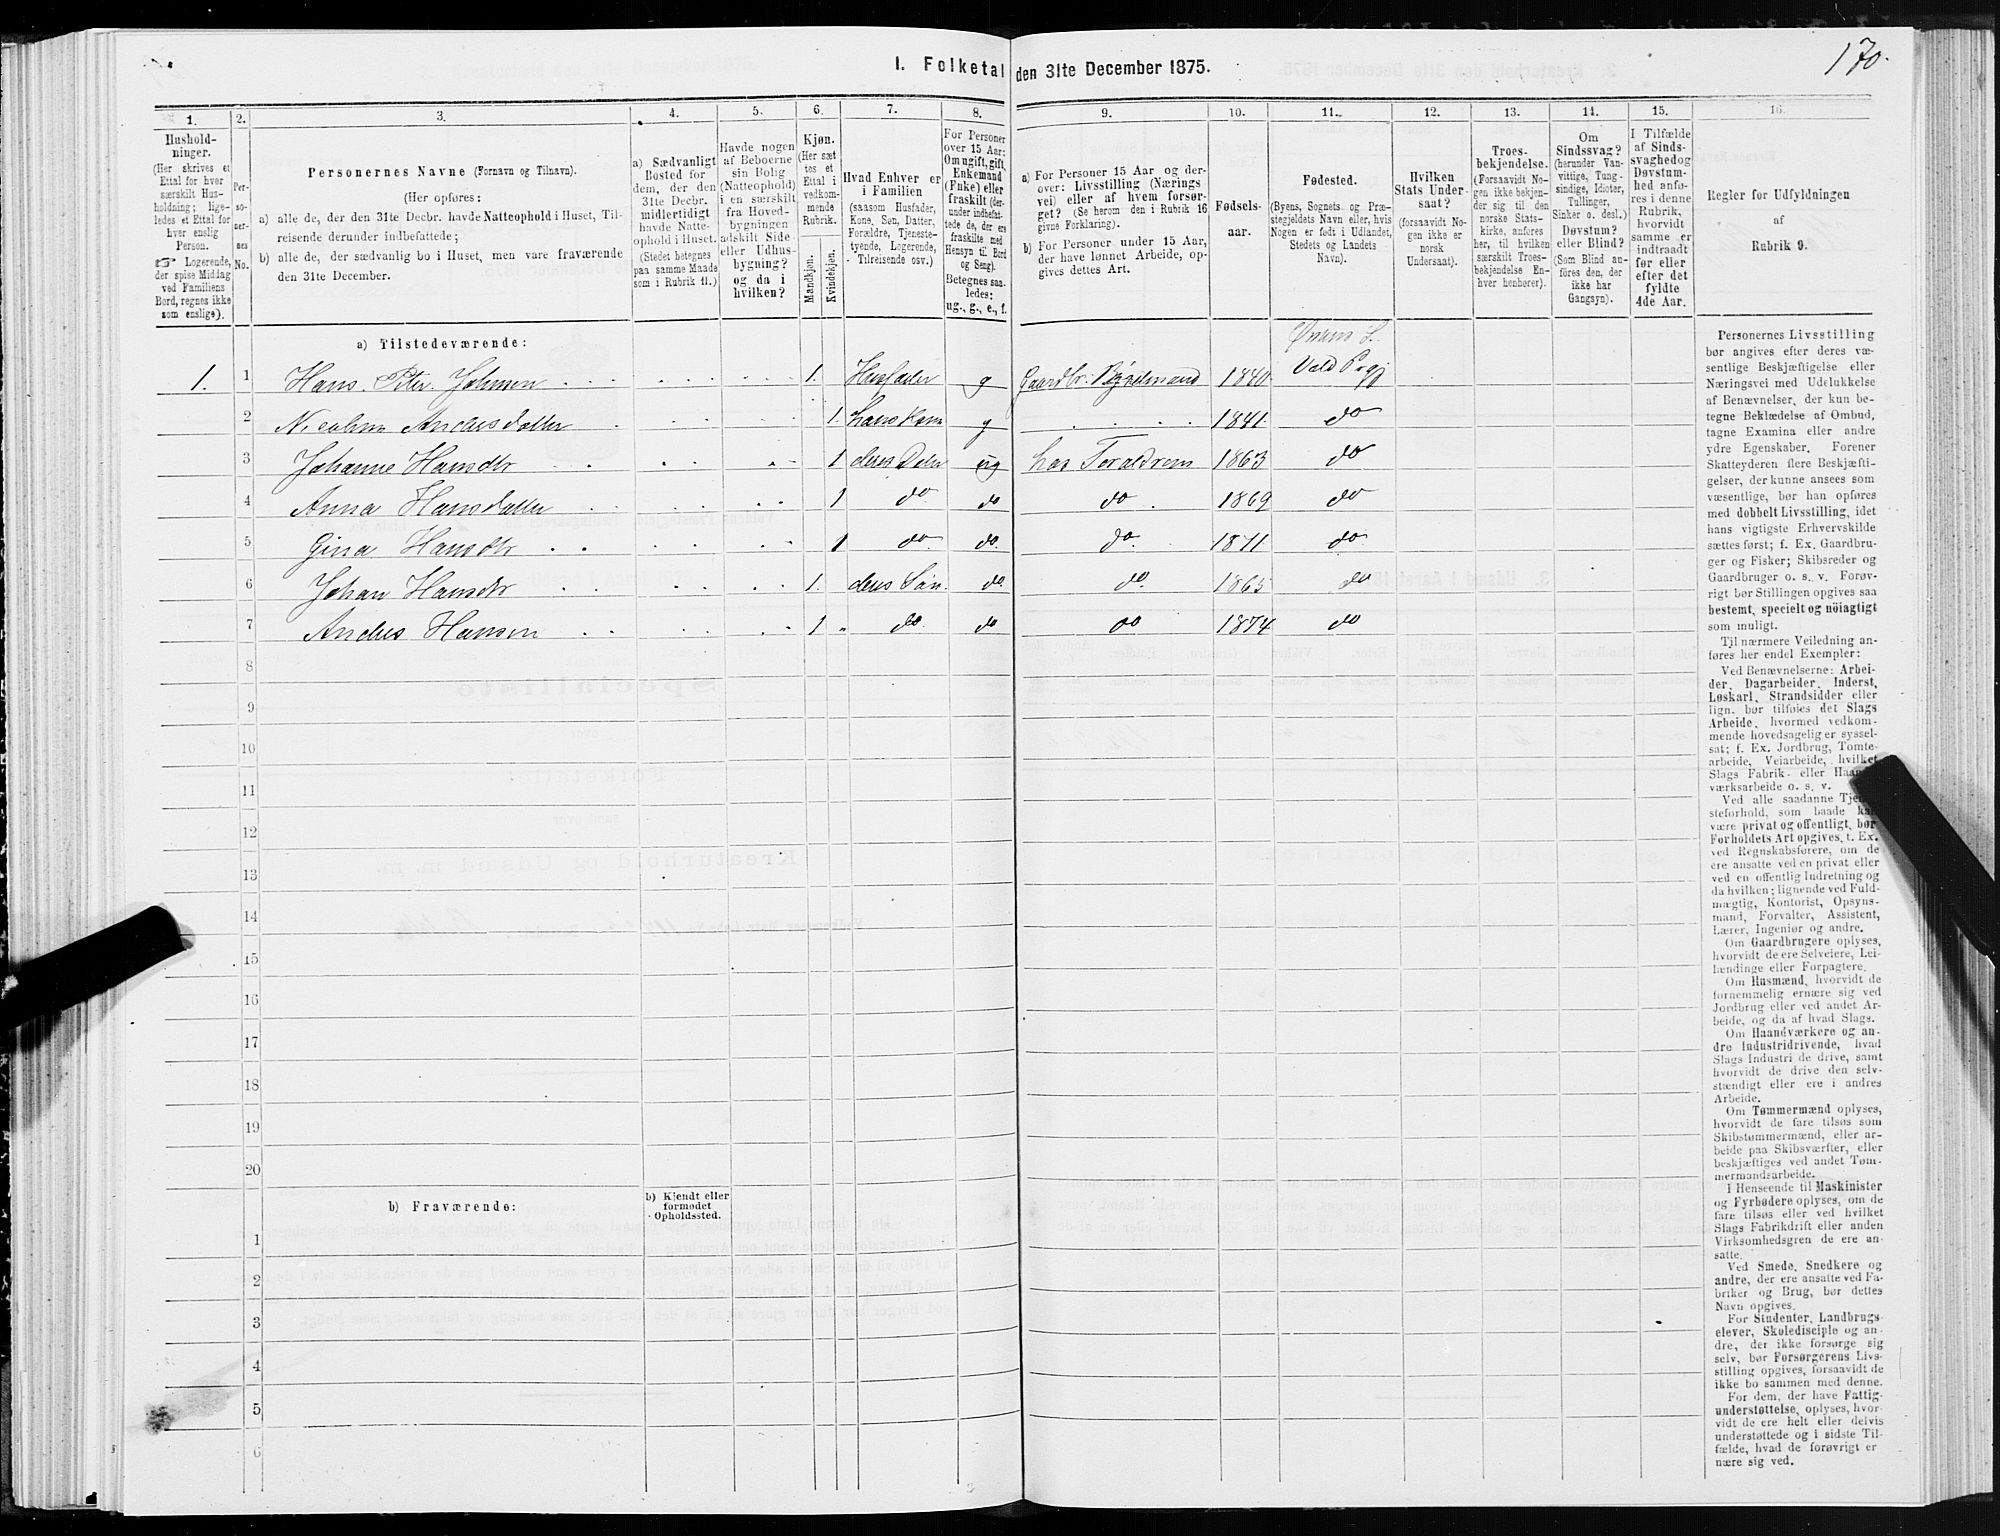 170.
I. Folketal den 31te December 1875.
1. 2. 3. 4. 5. 6. 7. 8. 9. 10. 11. 12. 13. 14. 15. 16.
Husholdninger.
(Her skrives et
Ettal for hver
særskilt Husholdning;
ligeledes et Ettal for
hver enslig
Person.
☞ Logerende,
der spise Middag
ved Familiens
Bord, regnes ikke
som enslige).
Personernes No.
Personernes Navne (Fornavn og Tilnavn).
(Her opføres:
a) alle de, der den 31te Decbr. havde Natteophold i Huset, Tilreisende derunder indbefattede;
b) alle de, der sædvanlig bo i Huset, men vare fraværende
den 31te December.
a) Sædvanligt
Bosted for
dem, der den
31te Decbr.
midlertidigt
havde Natteophold i Huset.
(Stedet betegnes
paa samme Maade
som i Rubrik 11.)
Havde nogen
af Beboerne
sin Bolig
(Natteophold)
i en særskilt
fra Hovedbygningen
adskilt Side-
eller Udhusbygning?
og da i
hvilken?
Kjøn.
(Her sættes et
Ettal i
vedkommende
Rubrik.
Mandkjøn.
Kvindekjøn.
Hvad Enhver er
i Familien
(saasom Husfader,
Kone, Søn, Datter,
Forældre, Tjenestetyende, Logerende,
Tilreisende osv.)
For Personer
over 15 Aar:
Om ugift, gift,
Enkemand
(Enke) eller
fraskilt (derunder indbefattede de, der ere
fraskilte med
Hensyn til Bord
og Seng).
Betegnes saaledes:
ug., g., e., f.
a) For Personer 15 Aar og derover: Livsstilling (Næringsvei) eller af hvem forsørget? (Se herom den i Rubrik 16
givne Forklaring).
b) For Personer under 15 Aar,
der have lønnet Arbeide, opgives dettes Art.
Fødselsaar.
Fødested.
(Byens, Sognets og Præstegjeldets Navn eller, hvis
Nogen er født i Udlandet,
Stedets og Landets
Navn).
Hvilken
Stats Undersaat?
(forsaavidt Nogen ikke er
norsk
Undersaat).
Troesbekjendelse.
(Forsaavidt Nogen ikke bekjender sig til den
norske Statskirke, anføres
her, til hvilken
særskilt Troesbekjendelse Enhver henhører).
Om
Sindssvag?
(herunder Vanvittige, Tungsindige, Idioter,
Tullinger,
Sinker o. desl.)
Døvstum?
eller Blind?
(Som Blind anføres den, der
ikke har
Gangsyn).
I Tilfælde
af Sindssvaghed og
Døvstumhed anføres i denne
Rubrik,
hvorvidt
samme er
indtraadt
før eller
efter det
fyldte
4de Aar.
Regler for Udfyldningen
af
Rubrik 9.
a) Tilstedeværende:
1. 1 Hans Peter Johnsen 1. Husfader g Gaardbr. 1840 Vold Prgj
2 Nicoline Andersdatter 1. hans Kone g 1841 do
3 Johanne Hansdtr 1 deres Dater ug hos Foraldrene 1863 do
4 Anna Hansdatter 1 do do do 1869 do
5 Gina Hansdtr 1 do do do 1871 do
6 Johan Hansdtr 1. deres Søn do do 1865 do
7 Anders Hansen 1 do do do 1874 do
8
9
10
11
12
13
14
15
16
17
18
19
20
b) Fraværende:
b) Kjendt eller
formodet
Opholdssted.
1
2
3
4
5
6
Personernes Livsstilling
bør angives efter deres væsentlige Beskjæftigelse eller
Næringsvei med Udelukkelse
af Benævnelser, der kun betegne Beklædelse af Ombud,
tagne Examina eller andre
ydre Egenskaber. Forener
Skatteyderen flere Beskjæftigelser, der kunne ansees som
væsentlige, bør han opføres
med dobbelt Livsstilling, idet
hans vigtigste Erhvervskilde
sættes først; f. Ex. Gaardbruger og Fisker; Skibsreder og
Gaardbruger o. s. v. Forøvrigt bør Stillingen opgives saa
bestemt, specielt og nöiagtigt
som muligt.
Til nærmere Veiledning anføres her endel Exempler:
Ved Benævnelserne: Arbeider, Dagarbeider, Inderst,
Løskarl, Strandsidder eller
lign. bør tilføies det Slags
Arbeide, hvormed vedkommende hovedsagelig er sysselsat; f. Ex. Jordbrug, Tomtearbeide, Veiarbeide, hvilket
Slags Fabrik- eller Haandværksarbeide o. s. v.
Ved alle saadanne Tjenesteforhold, som baade kan
være privat og offentligt, bør
Forholdets Art opgives, t. Ex.
ved Regnskabsførere, om de
ere ansatte ved en privat eller
ved en offentlig Indretning og
da hvilken; lignende ved Fuldmægtig, Kontorist, Opsynsmand, Forvalter, Assistent,
Lærer, Ingeniør og andre.
Om Gaardbrugere oplyses,
hvorvidt de ere Selveiere, Leilændinge eller Forpagtere.
Om Husmænd, hvorvidt de
fornemmelig ernære sig ved
Jordbrug eller ved andet Arbeide, og da af hvad Slags.
Om Haandværkere og andre Industridrivende, hvad
Slags Industri de drive, samt
hvorvidt de drive den selvstændigt eller ere i andres
Arbeide.
Om Tømmermænd oplyses,
hvorvidt de fare tilsøs som
Skibstømmermænd, eller arbeide paa Skibsværfter, eller
beskjæftiges ved andet Tømmermandsarbeide.
I Henseende til Maskinister
og Fyrbødere oplyses, om de
fare tilsøs eller ved hvilket
Slags Fabrikdrift eller anden
Virksomhedsgren de ere ansatte.
Ved Smede, Snedkere og
andre, der ere ansatte ved Fabriker og Brug, bør dettes
Navn opgives.
For Studenter, Landbrugselever, Skoledisciple og andre, der ikke forsørge sig
selv, bør Forsørgerens Livsstilling opgives, forsaavidt de
ikke bo sammen med denne.
For dem, der have Fattigunderstøttelse, oplyses, hvorvidt de ere helt eller delvis
understøttede og i sidste Tilfælde, hvad de forøvrigt er
nære sig ved.